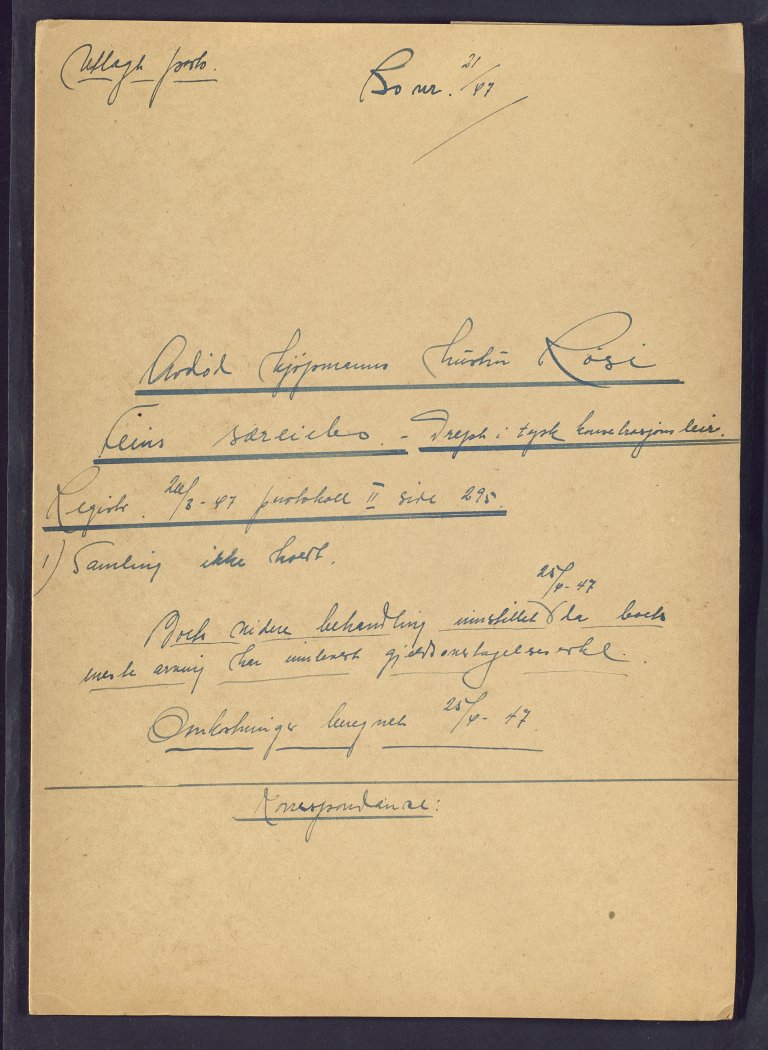 Utlagt porto.
Bo nr. 21/47
Avdød kjøpmanns hustru Rosi
Feins særeiebo. - Drept i tysk konsetrasjonsleir.
Registr. 20/3-47 protokoll II side 295.
1) Samling ikke holdt.
25/4-47
Boets videre behandling innstillet da boets
eneste arving har innlevert gjeldsovertagelseserkl.
Omkostninger beregnet 25/4-47.
Korrespondanse: